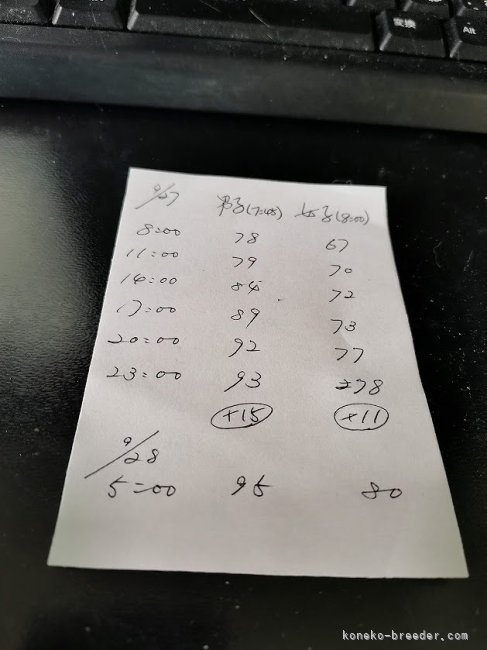 変換
Alt
9/27 男子(7:45) 女子(8:00)
8:00 78 67
11:00 79 70
14:00 84 72
17:00 89 73
20:00 92 77
23:00 93 78
+15 +11
9/28
5:00 95 80
koneko-breeder.com